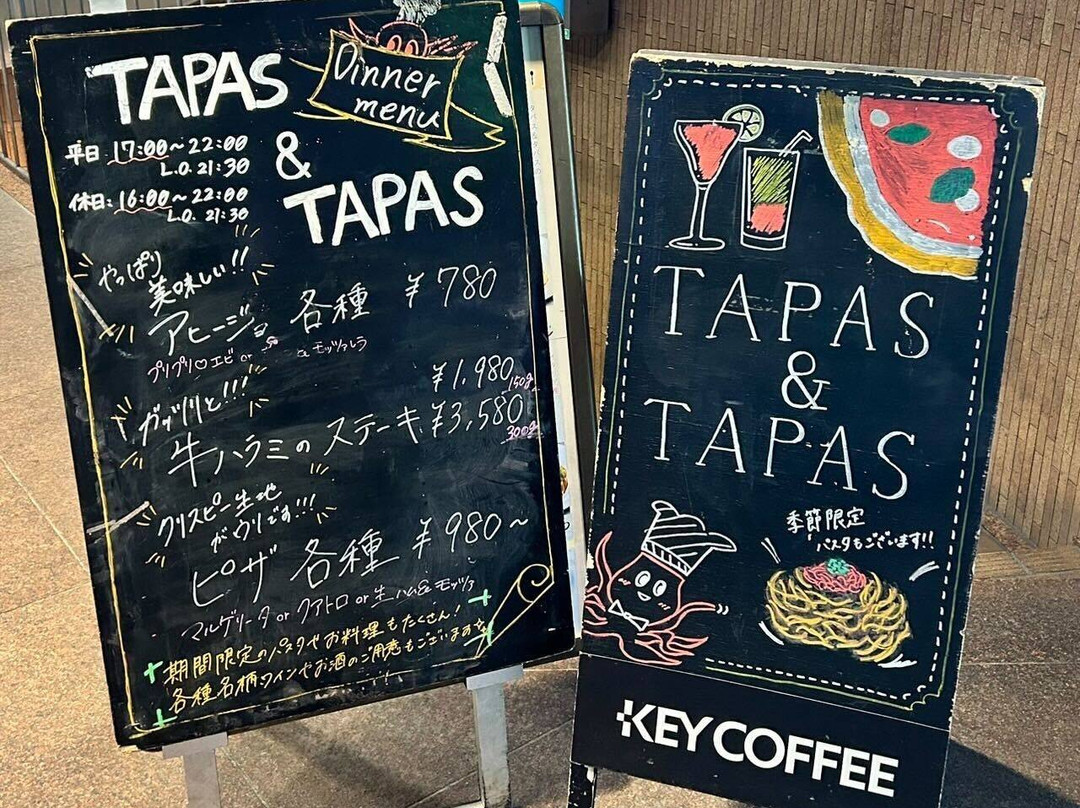 TAPAS
&
TAPAS
Dinner
menu
平日 17:00～22:00
L.O. 21:30
休日: 16:00～22:00
L.O. 21:30
やっぱり
美味しい!!
アヒージョ 各種 ¥780
プリプリ♡エビ or
& モッツァレラ
ガッツリと!!!
¥1,980 150g
牛ハラミのステーキ ¥3,580
300g
クリスピー生地
がウリです!!!
ピザ 各種 ¥980～
マルゲリータ or クアトロ or 生ハム& モッツァ
期間限定のパスタやお料理もたくさん!
各種名柄ワインやお酒のご用意もございます☆
!!
TAPAS
&
TAPAS
季節限定
パスタもございます!!
KEY COFFEE